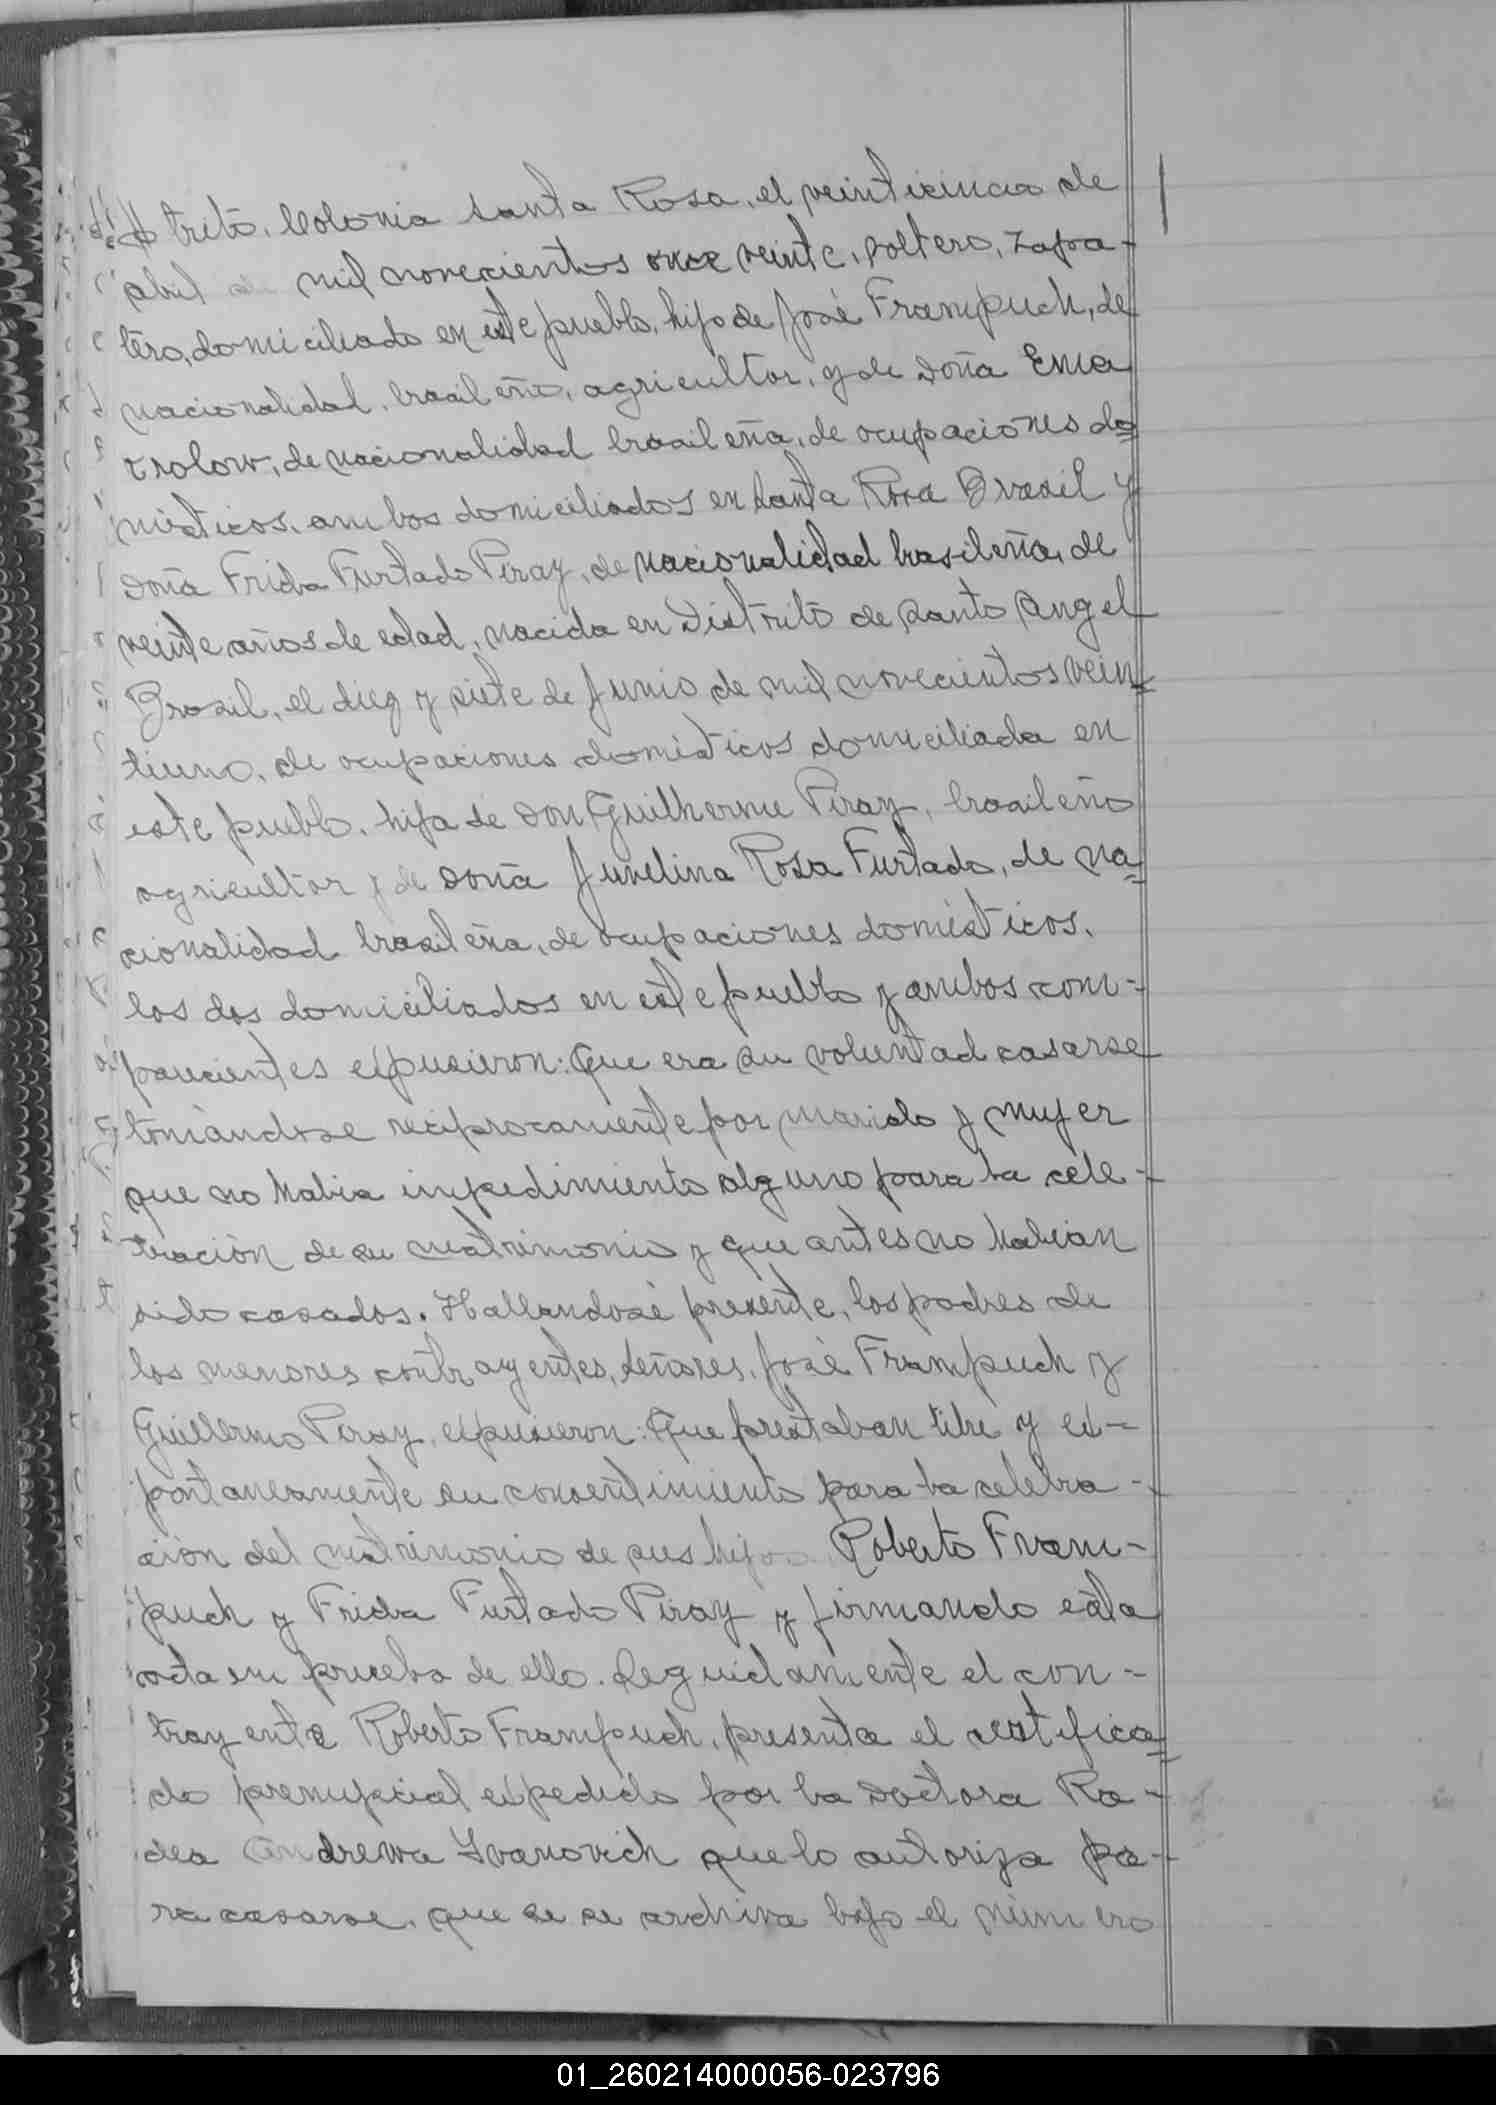 trito, Colonia Santa Rosa, el veinticinco de
abril de mil novecientos once veinte, soltero, zapa-
tero, domiciliado en este pueblo, hijo de José Frampuch, de
nacionalidad brasileña, agricultor, y de Doña Ema
Trolow, de nacionalidad brasileña, de ocupaciones do=
mésticos, ambos domiciliados en Santa Rosa Brasil y
Doña Frida Furtado Piray, de nacionalidad brasileña, de
veinte años de edad, nacida en Distrito de Santo Angel
Brasil, el diez y siete de Junio de mil novecientos vein=
tiuno, de ocupaciones domésticos domiciliada en
este pueblo, hija de Don Guilherme Piray, brasileño
agricultor y de Doña Juvelina Rosa Furtado, de na=
cionalidad brasileña, de ocupaciones domésticos,
los dos domiciliados en este pueblo y ambos com-
parecientes expusieron: Que era su voluntad casarse
tomándose reciprocamente por marido y mujer
que no habia impedimiento alguno para la cele-
bración de su matrimonio y que antes no habian
sido casados. Hallandosé presente, los padres de
los menores contrayentes, señores, José Frampuch y
Guillermo Piray, expusieron: Que prestaban libre y es-
pontaneamente su consentimiento para la celebra-
cion del matrimonio de sus hijos Roberto Fram-
puch y Frida Furtado Piray y firmando esta
acta en prueba de ello. Seguidamente el con-
trayente Roberto Frampuch, presenta el certifica=
do prenupcial expedido por la Doctora Ra-
dea Andrewa Ivanovich que lo autoriza pa-
ra casarse, que se se archiva bajo el número
01_260214000056-023796